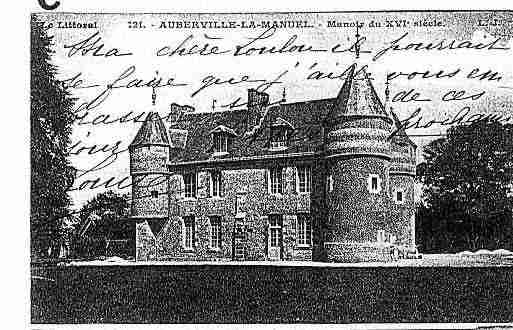 C
Le Littoral 121. - AUBERVILLE-LA-MANUEL. - Manoir du XVIe siècle. L. L.
Ma chère Loulou il se pourrait
se faire que j'aille vous em
brasser de ces
jours prochains
Loulou